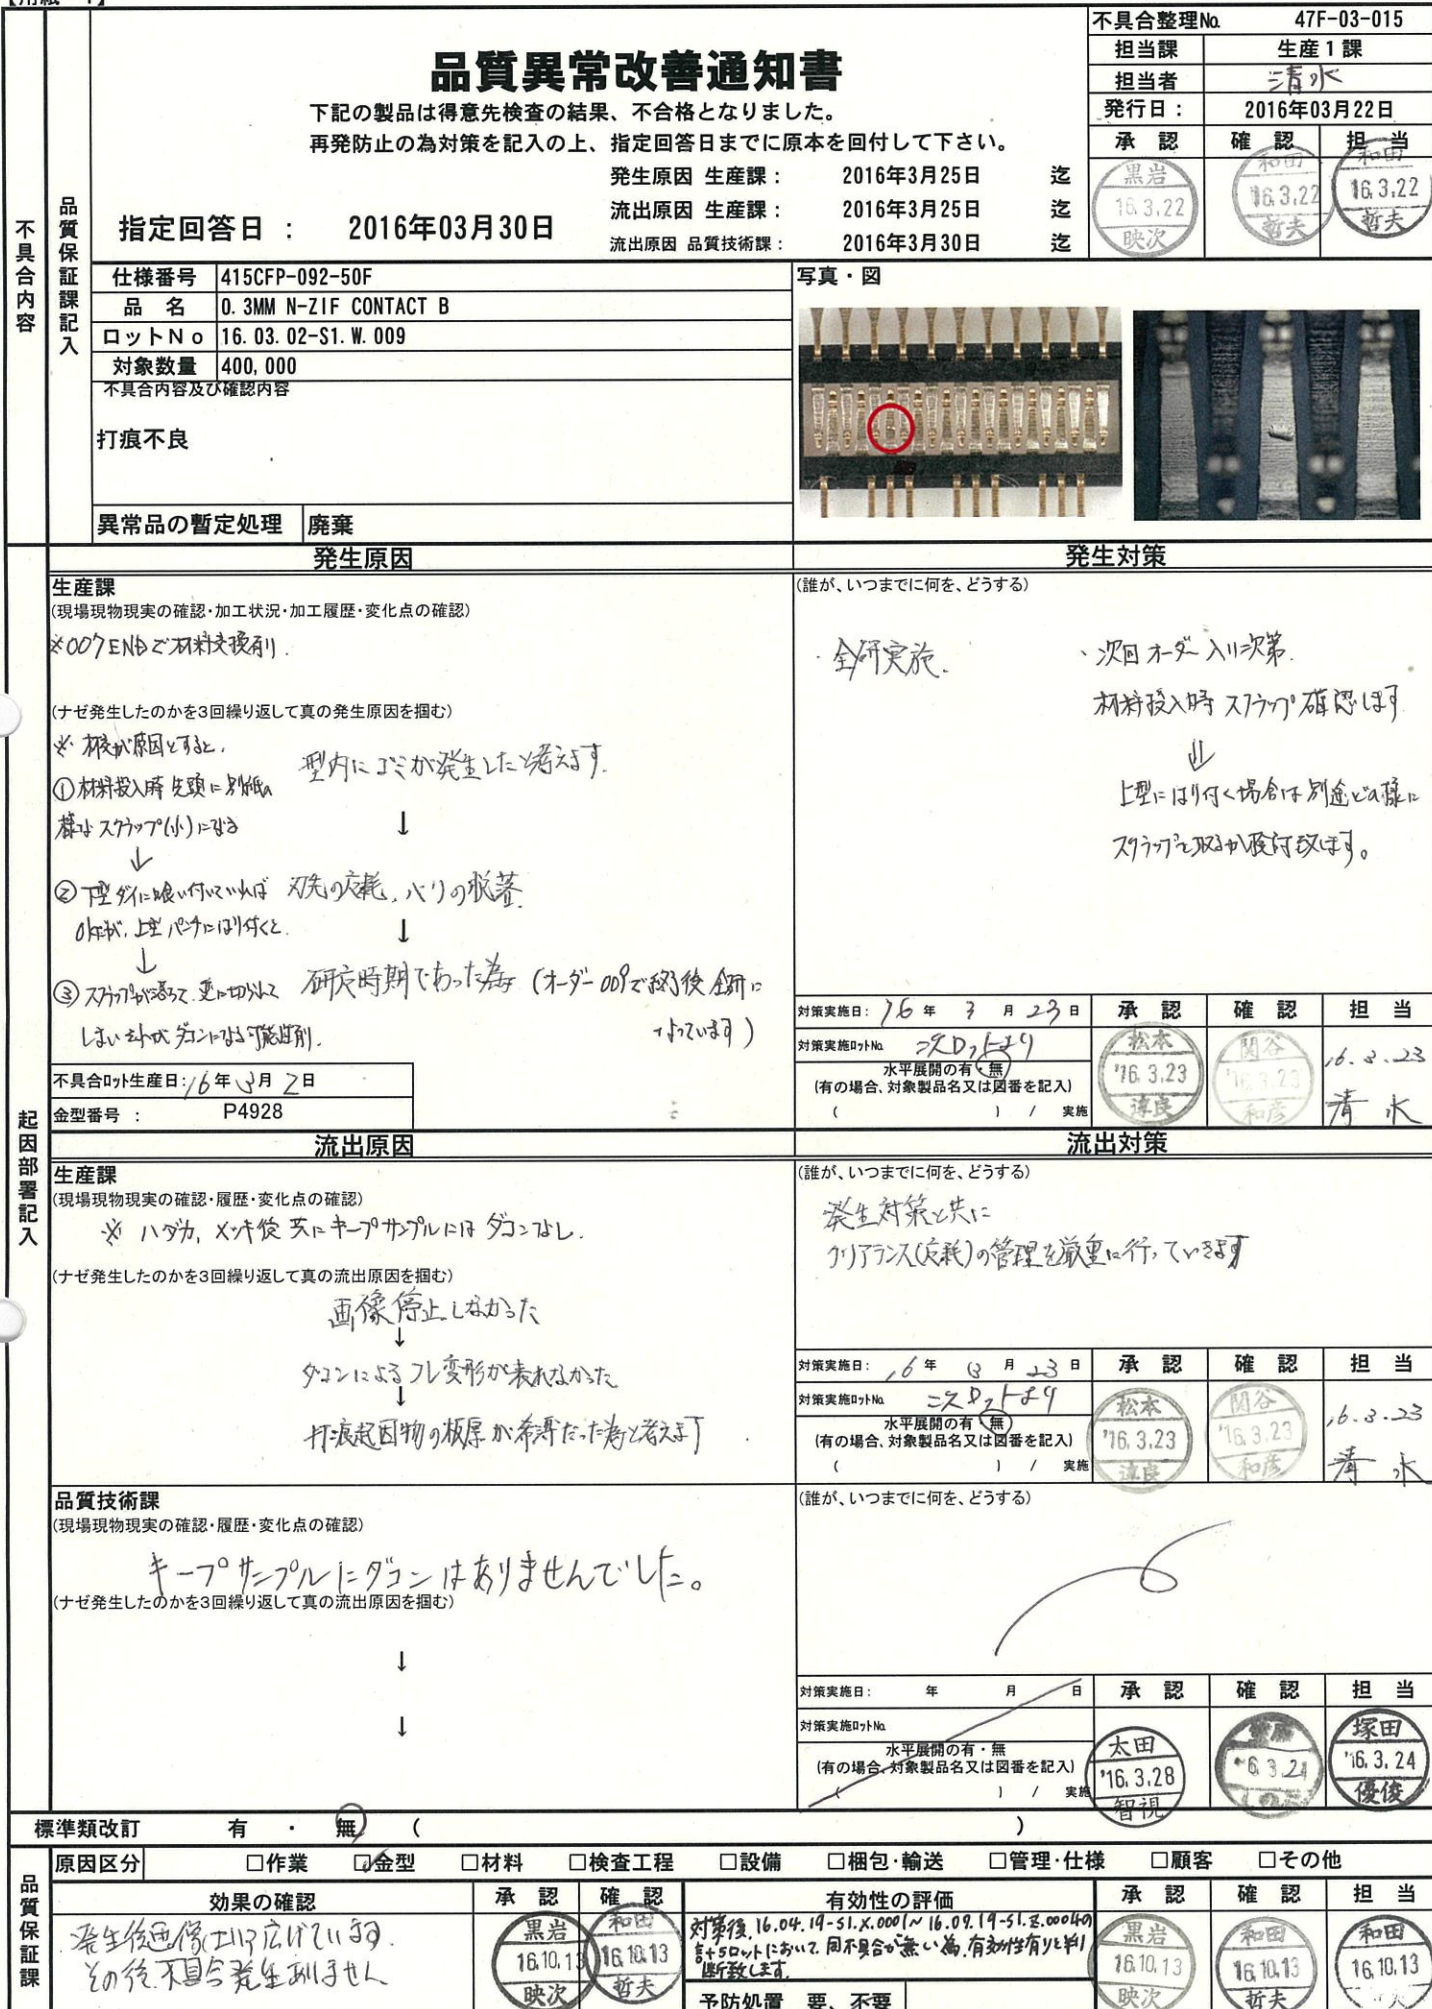 不具合整理No. 47F-03-015
担当課 生産1課
担当者 清水
発行日： 2016年03月22日
承認 確認 担当
黒岩 16.3.22 映次
和田 16.3.22 哲夫
和田 16.3.22 哲夫
品質異常改善通知書
下記の製品は得意先検査の結果、不合格となりました。
再発防止の為対策を記入の上、指定回答日までに原本を回付して下さい。
発生原因 生産課： 2016年3月25日 迄
流出原因 生産課： 2016年3月25日 迄
流出原因 品質技術課： 2016年3月30日 迄
指定回答日 ： 2016年03月30日
不具合内容
品質保証課記入
仕様番号 415CFP-092-50F
品名 0.3MM N-ZIF CONTACT B
ロットNo 16.03.02-S1.W.009
対象数量 400,000
不具合内容及び確認内容
打痕不良
異常品の暫定処理 廃棄
写真・図
起因部署記入
発生原因
生産課
(現場現物現実の確認・加工状況・加工履歴・変化点の確認)
※007ENDで材料交換有り.
(ナゼ発生したのかを3回繰り返して真の発生原因を掴む)
※材交が原因とすると.
①材料投入時 先頭に別紙の
様なスクラップ(小)になる
↓
②下型ダイに喰い付いていれば
OKだが、上型パンチにはり付くと.
↓
③スクラップが落ちて、更に切られて
しまいそれがダコンになる可能性有.
型内にゴミが発生したと考えます.
↓
刃先の摩耗、バリの脱落.
↓
研磨時期であった為 (オーダー009で終了後全研に
なっています)
不具合ロット生産日: 16年 3月 2日
金型番号 : P4928
発生対策
(誰が、いつまでに何を、どうする)
・全研実施.
・次回オーダー入り次第.
材料投入時 スクラップ確認します
↓
上型にはり付く場合は別途どの様に
スクラップを取るか検討致します。
対策実施日: 16年 3月 23日
対策実施ロットNo. 次ロットより
水平展開の有・無
(有の場合、対象製品名又は図番を記入)
( ) / 実施
承認 確認 担当
松本 '16.3.23 淳良
関谷 '16.3.23 和彦
16.3.23 清水
流出原因
生産課
(現場現物現実の確認・履歴・変化点の確認)
※ ハダカ, メッキ後 共にキープサンプルには ダコンなし.
(ナゼ発生したのかを3回繰り返して真の流出原因を掴む)
画像停止しなかった
↓
ダコンによるフレ変形が表れなかった
↓
打痕起因物の板厚が希薄だった為と考えます
流出対策
(誰が、いつまでに何を、どうする)
発生対策と共に
クリアランス(摩耗)の管理を厳重に行っていきます
対策実施日: 16年 3月 23日
対策実施ロットNo. 次ロットより
水平展開の有・無
(有の場合、対象製品名又は図番を記入)
( ) / 実施
承認 確認 担当
松本 '16.3.23 淳良
関谷 '16.3.23 和彦
16.3.23 清水
品質技術課
(現場現物現実の確認・履歴・変化点の確認)
キープサンプルにダコンはありませんでした。
(ナゼ発生したのかを3回繰り返して真の流出原因を掴む)
↓
↓
(誰が、いつまでに何を、どうする)
対策実施日: 年 月 日
対策実施ロットNo.
水平展開の有・無
(有の場合、対象製品名又は図番を記入)
( ) / 実施
承認 確認 担当
太田 '16.3.28 智視
6.3.24
塚田 '16.3.24 優俊
標準類改訂 有 ・ 無 ( )
品質保証課
原因区分 □作業 □金型 □材料 □検査工程 □設備 □梱包・輸送 □管理・仕様 □顧客 □その他
効果の確認
発生後画像エリア広げています.
その後、不具合発生ありません
承認 確認
黒岩 16.10.13 映次
和田 16.10.13 哲夫
有効性の評価
対策後、16.04.19-S1.X.0001~16.09.19-S1.Z.0004の
計5ロットにおいて、同不具合が無い為、有効性有りと判
断致します.
予防処置 要、不要
承認 確認 担当
黒岩 16.10.13 映次
和田 16.10.13 哲夫
和田 16.10.13